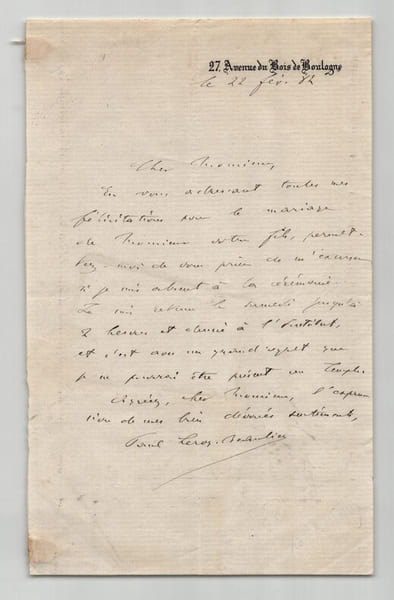 27, Avenue du Bois de Boulogne
le 22 fév. 82
Cher Monsieur,
En vous adressant toutes mes
félicitations pour le mariage
de Monsieur votre fils, permet-
tez-moi de vous prier de m'excuser
si je suis absent à la cérémonie.
Je suis retenu le samedi jusqu'à
2 heures et demie à l'Institut,
et c'est avec un grand regret que
je ne pourrai être présent au temple.
Agréez, cher Monsieur, l'expres
sion de mes bien dévoués sentiments,
Paul Leroy-Beaulieu